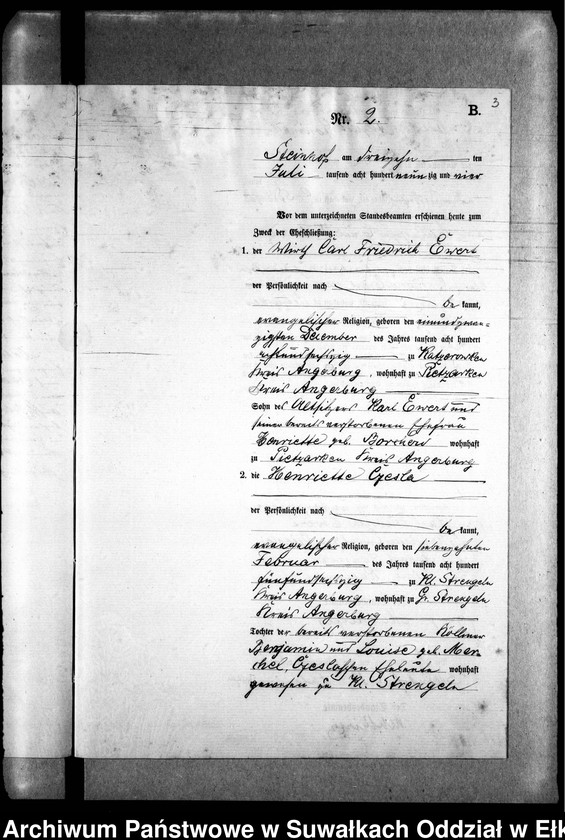 3
B.
Nr. 2.
Steinhof am dreizehn ten
Juli tausend acht hundert neun zig und vier
Vor dem unterzeichneten Standesbeamten erschienen heute zum
Zweck der Eheschließung:
1. der Wirth Carl Friedrich Ewert
der Persönlichkeit nach
be kannt,
evangelischer Religion, geboren den einundzwan-
zigsten Dezember des Jahres tausend acht hundert
achtundsechszig zu
Kreis Angerburg, wohnhaft zu Pietzarken
Kreis Angerburg
Sohn des Altsitzers Karl Ewert und
seiner bereits verstorbenen Ehefrau
Henriette geb. Borchert wohnhaft
zu Pietzarken Kreis Angerburg
2. die Henriette Czesla
der Persönlichkeit nach
be kannt,
evangelischer Religion, geboren den siebenzehnten
Februar des Jahres tausend acht hundert
fünfundsechszig zu Kl. Strengeln
Kreis Angerburg, wohnhaft zu Gr. Strengeln
Kreis Angerburg
Tochter der bereits verstorbenen Köllmer
Benjamin und Louise geb. Men-
chel, Czeslaschen Eheleute wohnhaft
gewesen zu Kl. Strengeln
Archiwum Państwowe w Suwałkach Oddział w Ełk